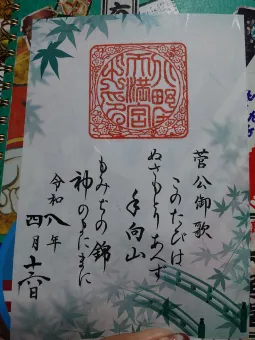 北野
天満宮
菅公御歌
このたびは
ぬさもとりあへず
手向山
もみぢの錦
神のまにまに
令和八年
四月十六日